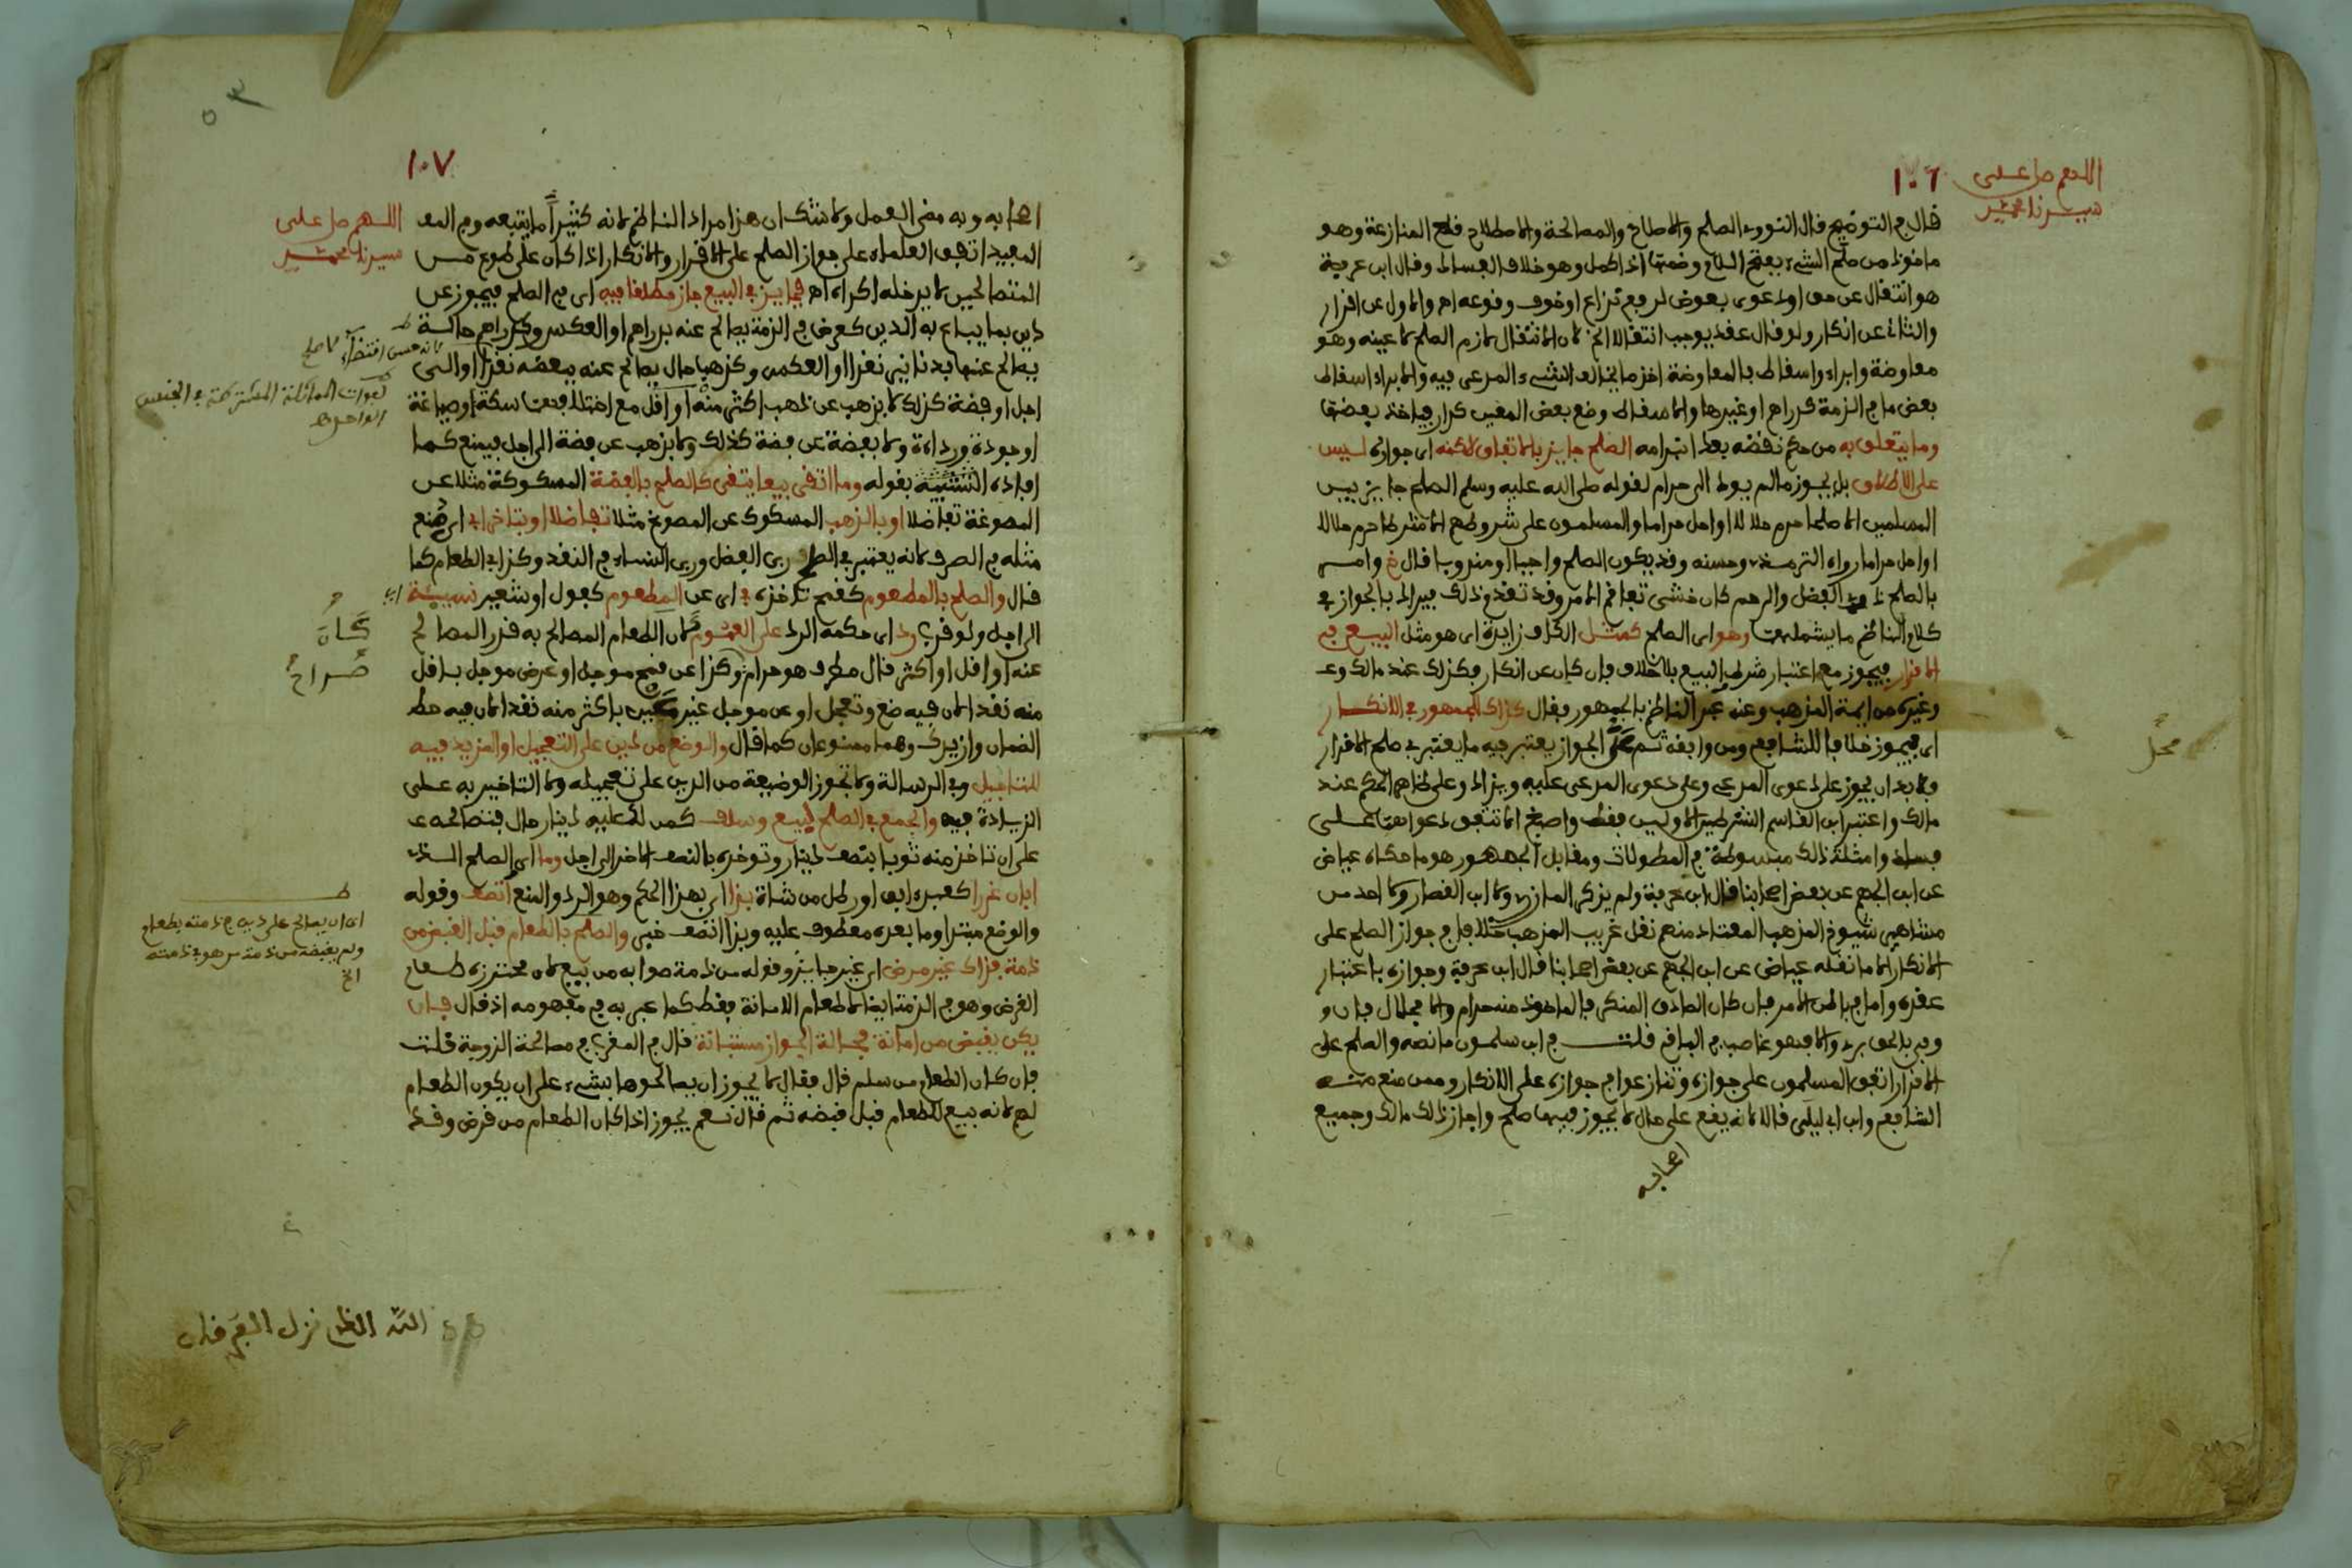 اللهم صل على
سيدنا محمد
١٠٦
قال في التوضيح قال النووي الصلح والاصلاح والمصالحة والاصطلاح قطع المنازعة وهو
ماخوذ من صلح الشيء بفتح اللام وضمها اذا كمل وهو خلاف الفساد وقال ابن عرفة
هو انتقال عن حق او دعوى بعوض لرفع نزاع او خوف وقوعه اه والاول عن اقرار
والثاني عن انكار ولو قال عقد يوجب انتقالا الخ لان الانتقال لازم الصلح لا عينه وهو
معاوضة وابراء واسقاط فالمعاوضة اخذ ما يخالف الشيء المدعى فيه والابراء اسقاط
بعض ما في الذمة كدراهم او غيرها والاسقاط وضع بعض المعين كدار فياخذ بعضها
وما يتعلق به من حكم نقضه بعد ابرامه الصلح جايز بالاتفاق لاكنه اي جوازه ليس
على الاطلاق بل يجوز ما لم يود الى حرام لقوله صلى الله عليه وسلم الصلح جايز بين
المسلمين الا صلحا حرم حلالا او احل حراما والمسلمون على شروطهم الا شرطا حرم حلالا
او احل حراما رواه الترمذي وحسنه وقد يكون الصلح واجبا او مندوبا قال خ وامر
بالصلح ذوي الفضل والرحم كان خشي تفاقم الامر وقد تقدم ذلك فيراد بالجواز في
كلام الناظم ما يشملهما وهو اي الصلح كمثل الكاف زايدة اي هو مثل البيع في
الاقرار فيجوز مع اعتبار شرط البيع بلا خلاف فان كان عن انكار فكذلك عند مالك و
وغيره من ايمة المذهب وعنه عبر الناظم بالجمهور فقال كذاك للجمهور في الانكار
اي فيجوز خلافا للشافعي ومن وافقه ثم على الجواز يعتبر فيه ما يعتبر في صلح الاقرار
ولا بد ان يجوز على دعوى المدعي وعلى دعوى المدعى عليه ويزاد وعلى ظاهر الحكم عند
مالك واعتبر ابن القاسم الشرطين الاولين فقط واصبغ الا تتفق دعواهما على
فساد وامثلة ذلك مبسوطة في المطولات ومقابل الجمهور هو ما حكاه عياض
عن ابن الجهم عن بعض اصحابنا قال ابن عرفة ولم يذكر المازري ولا ابن القصار ولا احد من
مشاهير شيوخ المذهب المعتاد منهم نقل غريب المذهب خلافا في جواز الصلح على
الانكار الا ما نقله عياض عن ابن الجهم عن بعض اصحابنا قال ابن عرفة وجوازه باعتبار
عقده واما في باطن الامر فان كان الصادق المنكر فالماخوذ منه حرام والا فحلال فان و
وفى بالحق برئ والا فهو غاصب في الباقي قلت في ابن سلمون ما نصه والصلح على
الاقرار اتفق المسلمون على جوازه وتنازعوا في جوازه على الانكار وممن منع منه
الشافعي وابن ابي ليلى قالا لانه يقع على حال لا يجوز فيها صلح واجاز ذلك مالك وجميع
اصحابه
محل
١٠٧
اللهم صل على
سيدنا محمد
اصحابه وبه مضى العمل ولا شك ان هذا مراد الناظم لانه كثيرا ما يتبعه وفي المفـ
المفيد اتفق العلماء على جواز الصلح على الاقرار والانكار اذا كان على طوع من
المتصالحين لا يدخله اكراه اه فجايز في البيع جاز مطلقا فيه اي في الصلح فيجوز عن
دين بما يباع به الدين كعرض في الذمة يصالح عنه بدراهم او العكس وكدراهم حالة
يصالح عنها بدنانير نقدا او العكس وكذهب حال يصالح عنه ببعضه نقدا او الى
اجل او فضة كذلك لا بذهب عن ذهب اكثر منه او اقل مع اختلافهما سكة او صياغة
او جودة ورداءة ولا بفضة عن فضة كذلك ولا بذهب عن فضة الى اجل فيمنع كما
افاده التشبيه بقوله وما اتقي بيعا يتقى كالصلح بالفضة المسكوكة مثلا عن
المصوغة تفاضلا او بالذهب المسكوك عن المصوغ مثلا تفاضلا او بتاخر ابي اي منع
مثله في الصرف لانه يعتبر في الصلح ربى الفضل وربى النساء في النقد وكذا في الطعام كما
قال والصلح بالمطعوم كقمح تاخذه في اي عن المطعوم كفول او شعير نسيئة اي
الى اجل ولو قرب رد اي حكمه الرد على العموم كان الطعام المصالح به قدر المصالح
عنه او اقل او اكثر قال مطرف هو حرام صراح وكذا عن قمح موجل او عرض موجل باقل
منه نقدا لان فيه ضع وتعجل او عن موجل غير عين باكثر منه نقدا لان فيه حط
الضمان وازيدك وهما ممنوعان كما قال والوضع من دين على التعجيل او المزيد فيه
للتاجيل وفي الرسالة ولا تجوز الوضيعة من الدين على تعجيله ولا التاخير به على
الزيادة فيه والجمع في الصلح لبيع وسلف كمن لك عليه دينار حال فتصالحه
على ان تاخذ منه ثوبا بنصف دينار وتوخره بالنصف الاخر الى اجل وما اي الصلح الذي
ابان غررا كعبد ابق او رطل من شاة بذا اي بهذا الحكم وهو الرد والمنع اتصف وقوله
والوضع مبتدا وما بعده معطوف عليه وبذا اتصف خبر والصلح بالطعام قبل القبض من
ذمة فذاك غير مرض اي غير جايز وقوله من ذمة صوابه من بيع لان محترزه طعام
القرض وهو في الذمة ايضا لا طعام الامانة فقط كما عبر به في مفهومه اذ قال فان
يكن يقبض من امانة فحالة الجواز مستبانة قال في المقرب في مصالحة الزوجة قلت
فان كان الطعام من سلم قال فقال لا يجوز ان يصالحوها بشيء على ان يكون الطعام
لهم لانه بيع للطعام قبل قبضه ثم قال نعم يجوز اذا كان الطعام من قرض وقد
لفوات المماثلة المشتركة في الجنس
الواحد
كان
صراح
اي ان يصالح على دين في ذمته بطعام
ولم يقبضه من ذمة من هو في ذمته
الخ
الله الذي نزل الفرقان